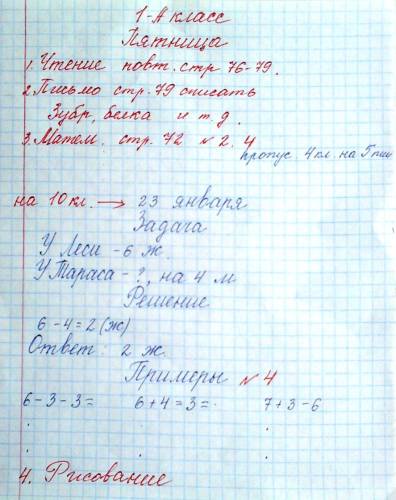 1-А класс
Пятница
1. Чтение повт. стр 76-79.
2. Письмо стр. 79 списать
Зубр, белка и т.д.
3. Матем. стр. 72 № 2, 4
пропус 4 кл. на 5 пиш
на 10 кл. → 23 января
Задача
У Леси - 6 ж.
У Тараса - ?, на 4 м
Решение
6 - 4 = 2 (ж)
Ответ: 2 ж.
Примеры № 4
6 - 3 - 3 = 6 + 4 = 3 = 7 + 3 - 6
4. Рисование